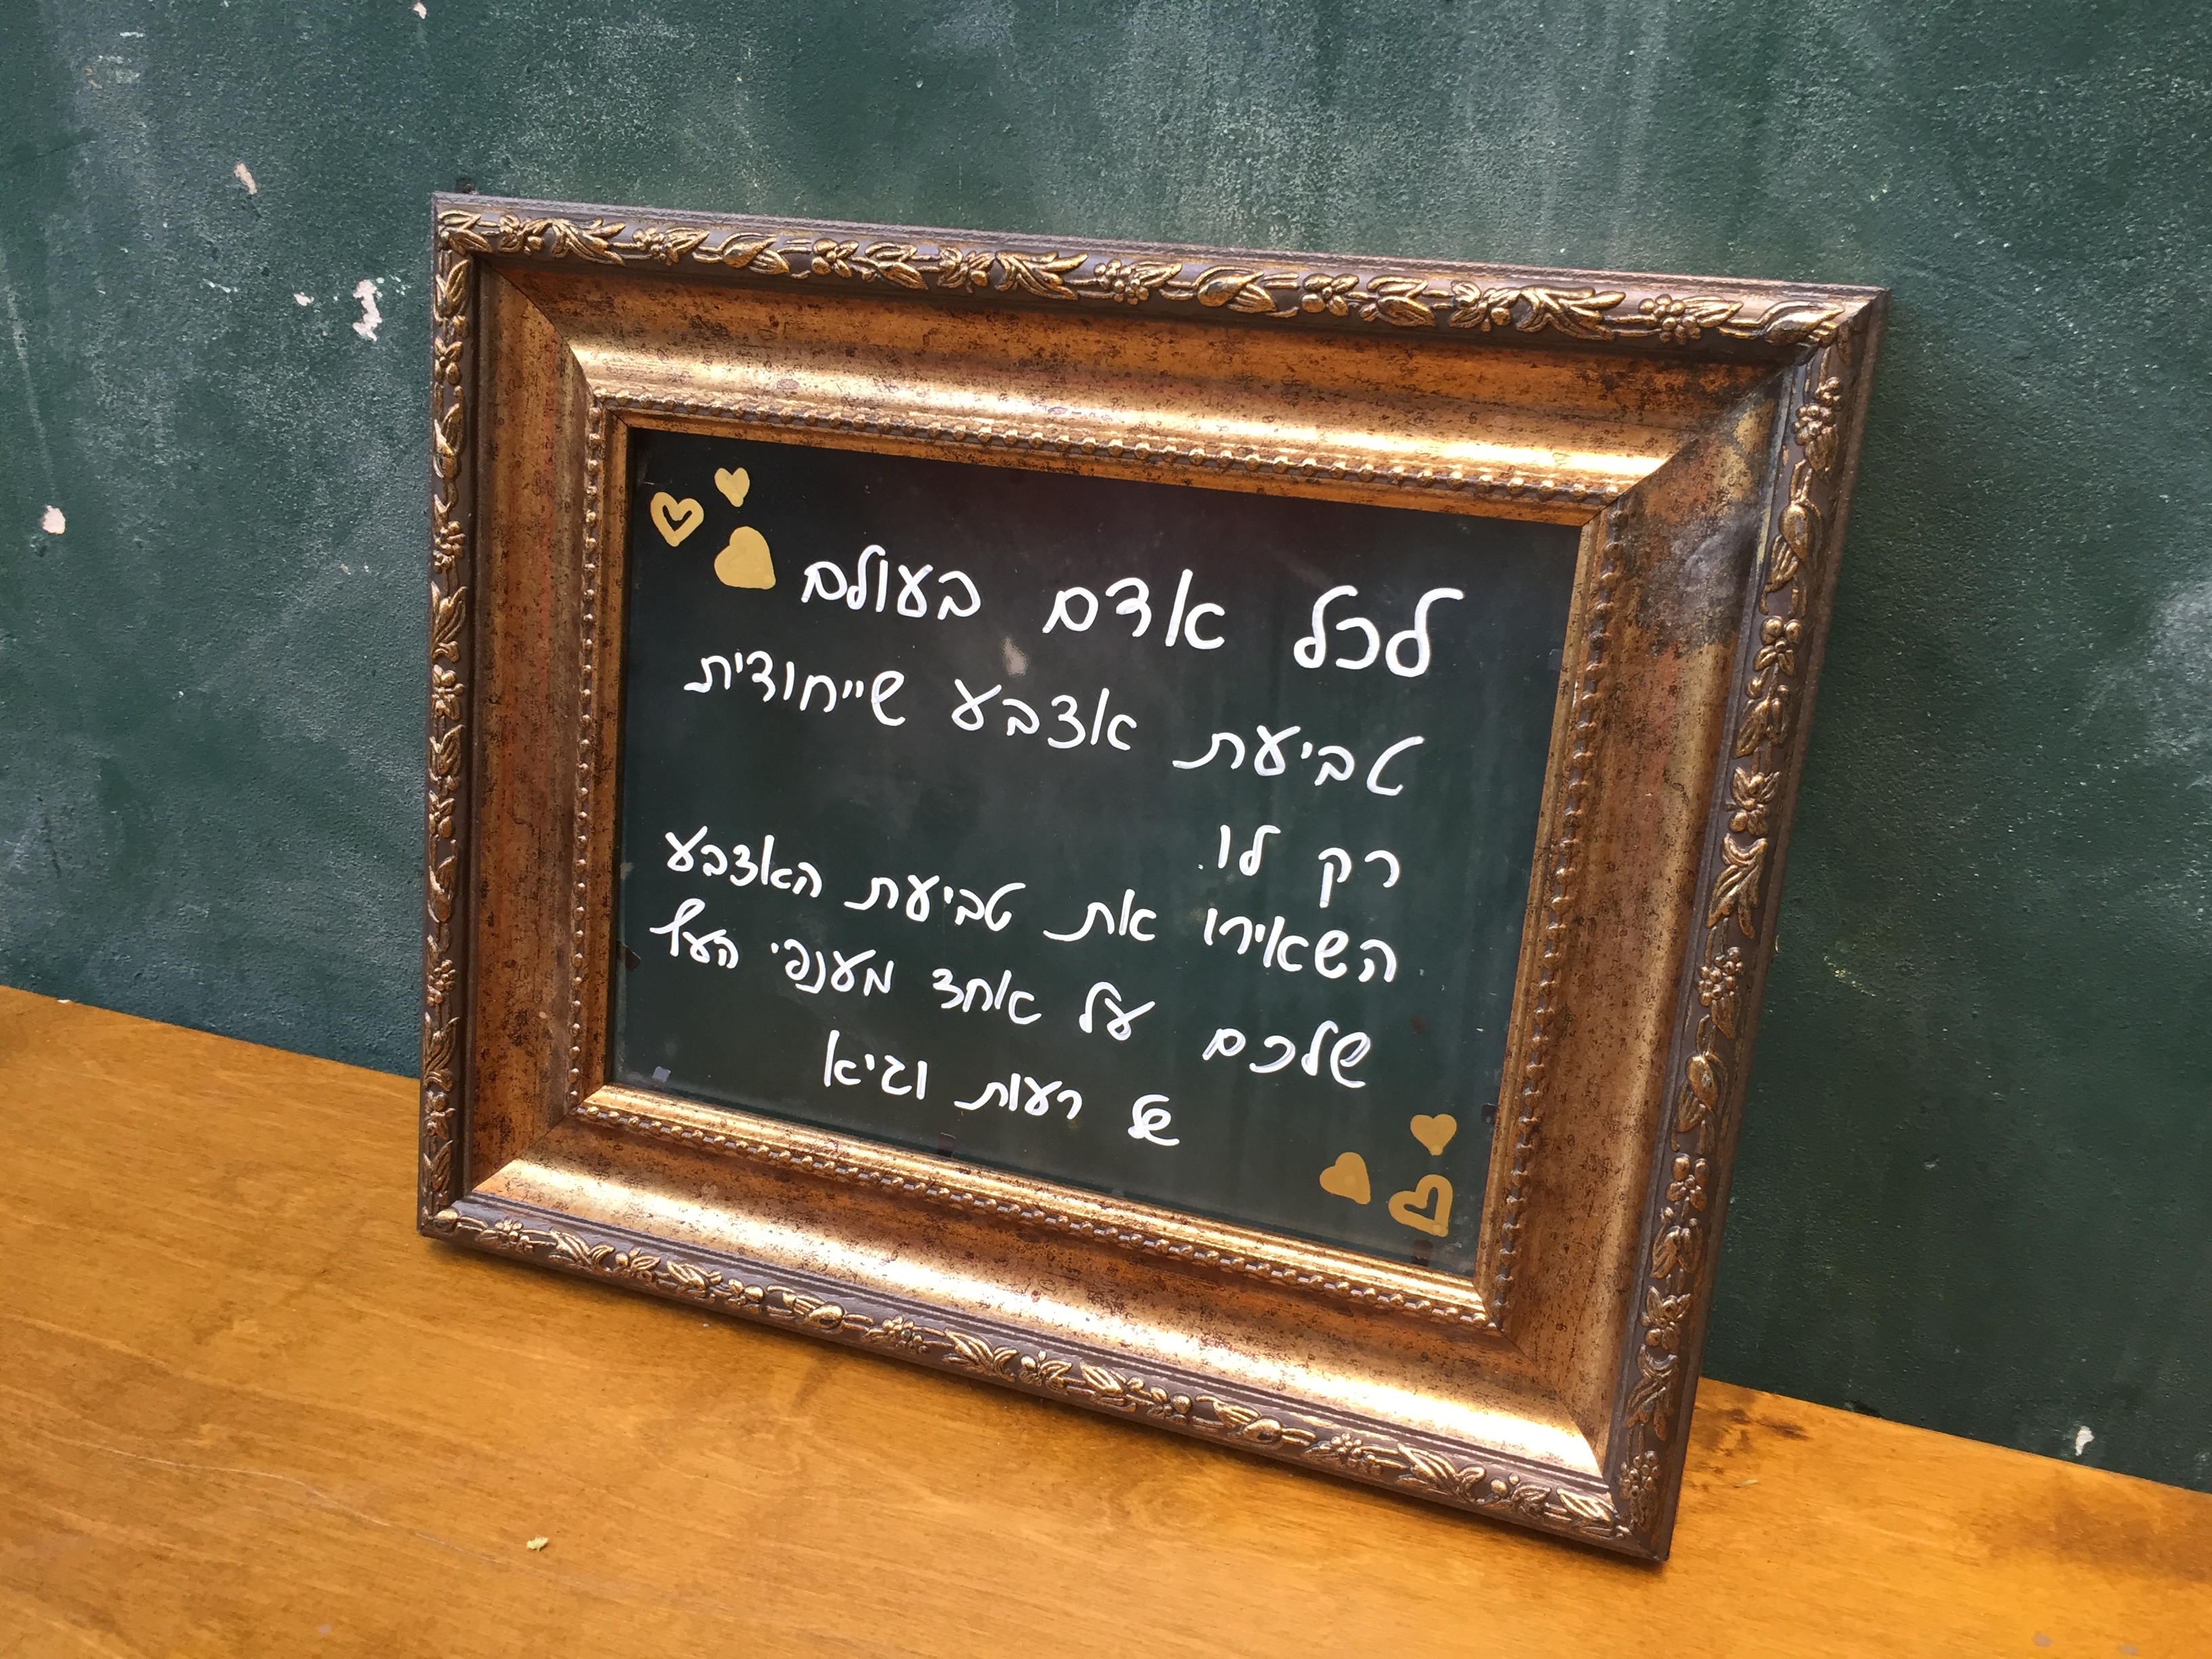 לכל אדם בעולם
טביעת אצבע שייחודית
רק לו.
השאירו את טביעת האצבע
שלכם על אחד מענפי העץ
של רעות וגיא